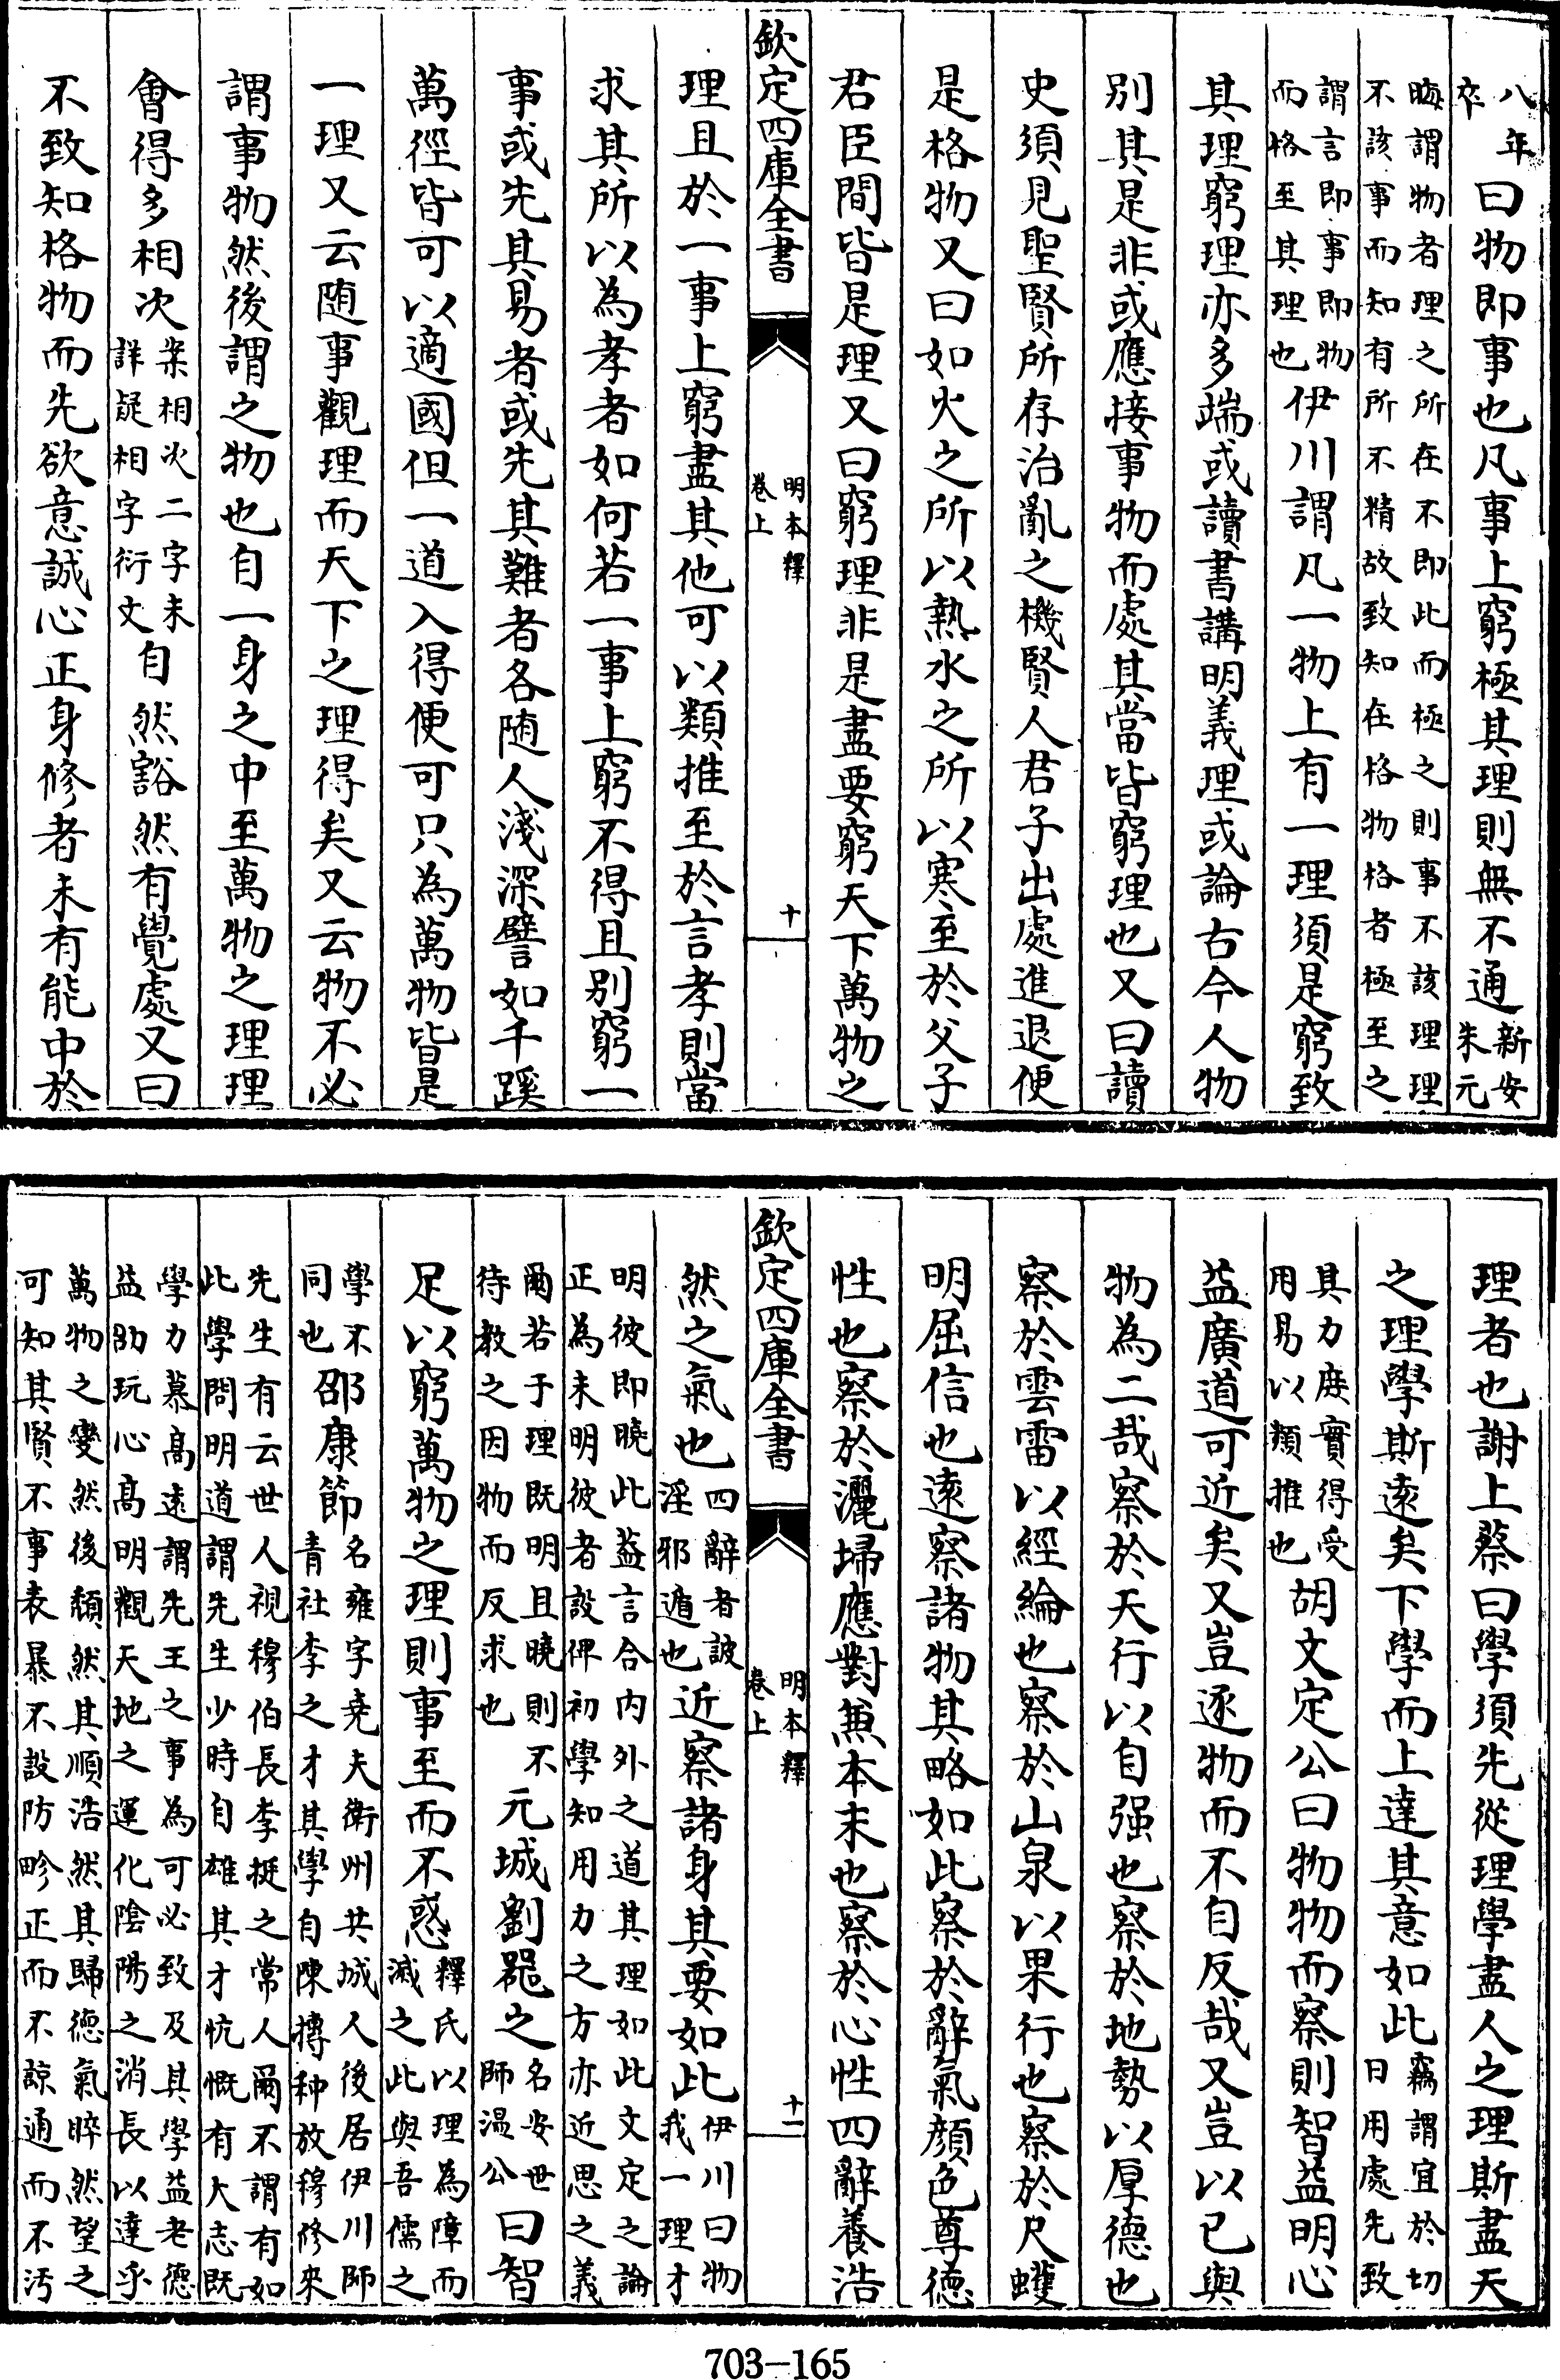 八年卒曰物即事也凡事上窮極其理則無不通新安朱元
晦謂物者理之所在不即此而極之則事不該理理不該事而知有所不精故致知在格物格者極至之
謂言即事即物而格至其理也伊川謂凡一物上有一理須是窮致
其理窮理亦多端或讀書講明義理或論古今人物
別其是非或應接事物而處其當皆窮理也又曰讀
史須見聖賢所存治亂之機賢人君子出處進退便
是格物又曰如火之所以熱水之所以寒至於父子
君臣間皆是理又曰窮理非是盡要窮天下萬物之
欽定四庫全書 明本釋卷上 十
理且於一事上窮盡其他可以類推至於言孝則當
求其所以為孝者如何若一事上窮不得且別窮一
事或先其易者或先其難者各随人淺深譬如千蹊
萬徑皆可以適國但一道入得便可只為萬物皆是
一理又云随事觀理而天下之理得矣又云物不必
謂事物然後謂之物也自一身之中至萬物之理理
會得多相次案相次二字未詳疑相字衍文自然豁然有覺處又曰
不致知格物而先欲意誠心正身修者未有能中於
理者也謝上蔡曰學須先從理學盡人之理斯盡天
之理學斯遠矣下學而上達其意如此竊謂宜於切日用處先致
其力庻實得受用易以類推也胡文定公曰物物而察則智益明心
益廣道可近矣又豈逐物而不自反哉又豈以已與
物為二哉察於天行以自强也察於地勢以厚德也
察於雲雷以經綸也察於山泉以果行也察於尺蠖
明屈信也遠察諸物其略如此察於辭氣顔色尊德
性也察於灑埽應對兼本末也察於心性四辭養浩
欽定四庫全書 明本釋卷上 十一
然之氣也四辭者詖淫邪遁也近察諸身其要如此伊川曰物我一理才
明彼即曉此益言合内外之道其理如此文定之論正為未明彼者設俾初學知用力之方亦近思之義
爾若于理既明且曉則不待教之因物而反求也元城劉噐之名安世師温公曰智
足以窮萬物之理則事至而不惑釋氏以理為障而滅之此與吾儒之
學不同也邵康節名雍字堯夫衛州共城人後居伊川師青社李之才其學自陳摶种放穆修來
先生有云世人視穆伯長李挺之常人爾不謂有如此學問明道謂先生少時自雄其才忼慨有大志既
學力慕高逺謂先王之事為可必致及其學益老德益卲玩心高明觀天地之運化陰陽之消長以達乎
萬物之變然後頹然其順浩然其歸德氣睟然望之可知其賢不事表暴不設防畛正而不諒通而不汚
703-165